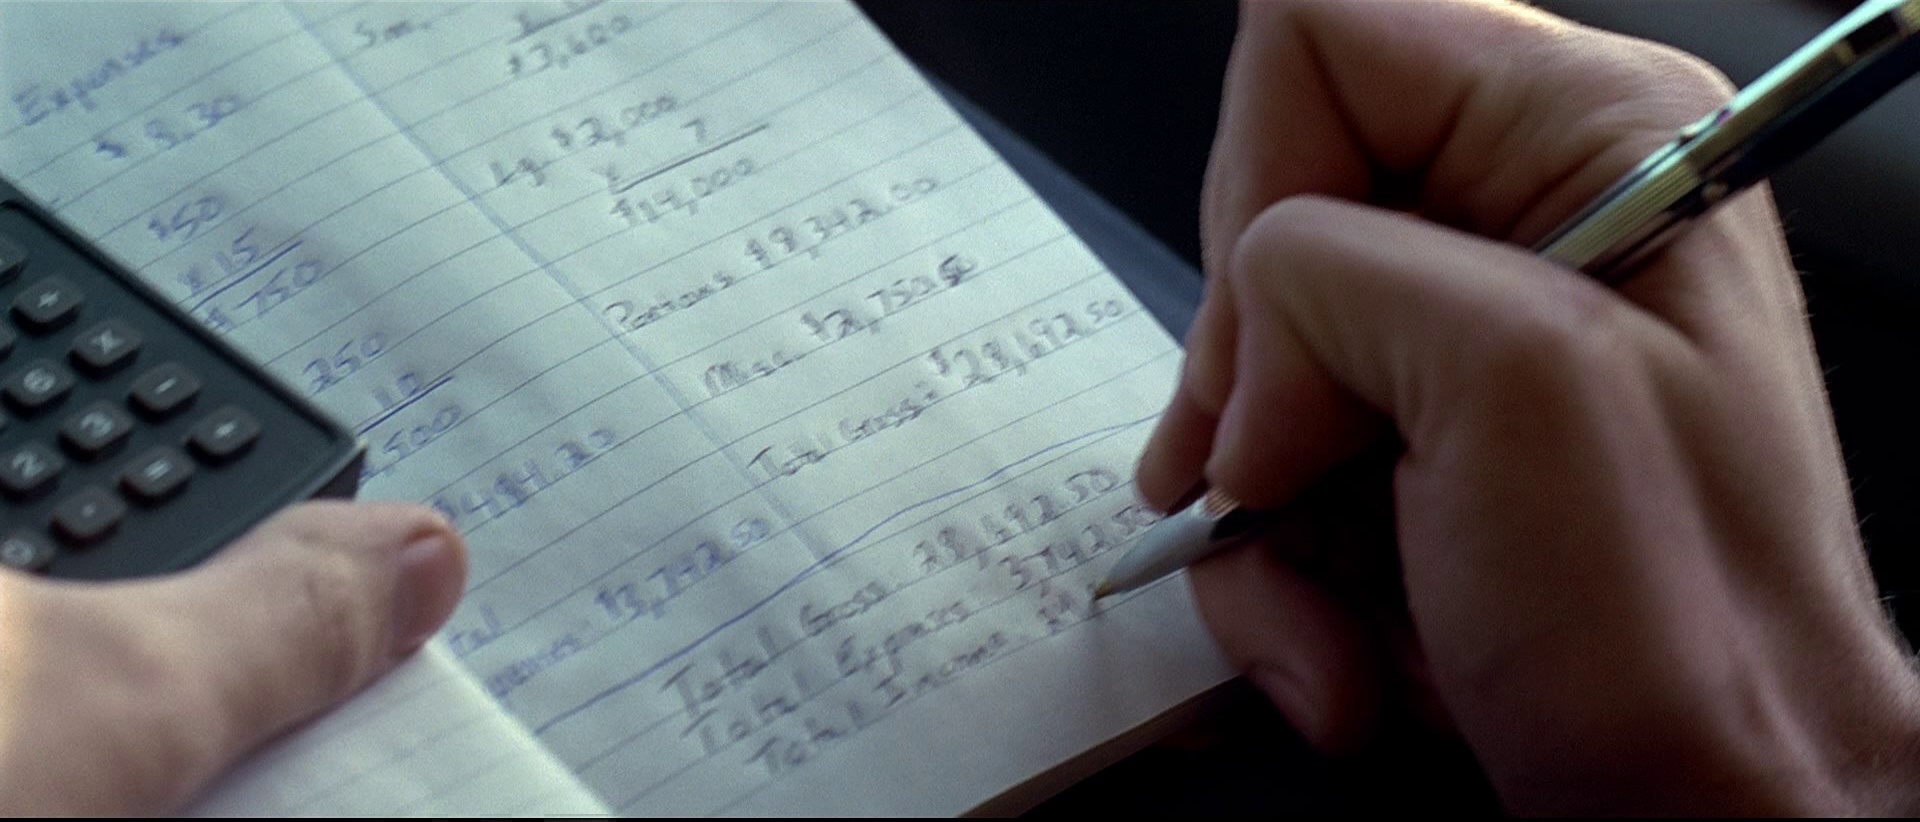 Expenses
$ 8.30
$50
x 15
$ 750
250
10
,500
$484.20
$3,742.50
Sm.
$3,600
Lg. $2,000
x 7
$14,000
Portions $9,342.00
Misc. $2,750.50
Total Gross: $29,692.50
Total Gross 29,692.50
Total Expenses 3742.50
Total Income
+
x
6
-
3
+
2
=
.
0